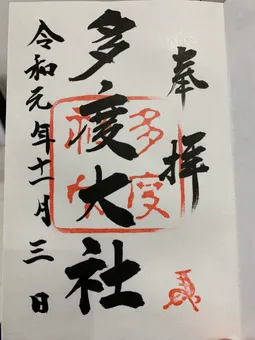 奉拝
多度大社
令和元年十一月三日
多度